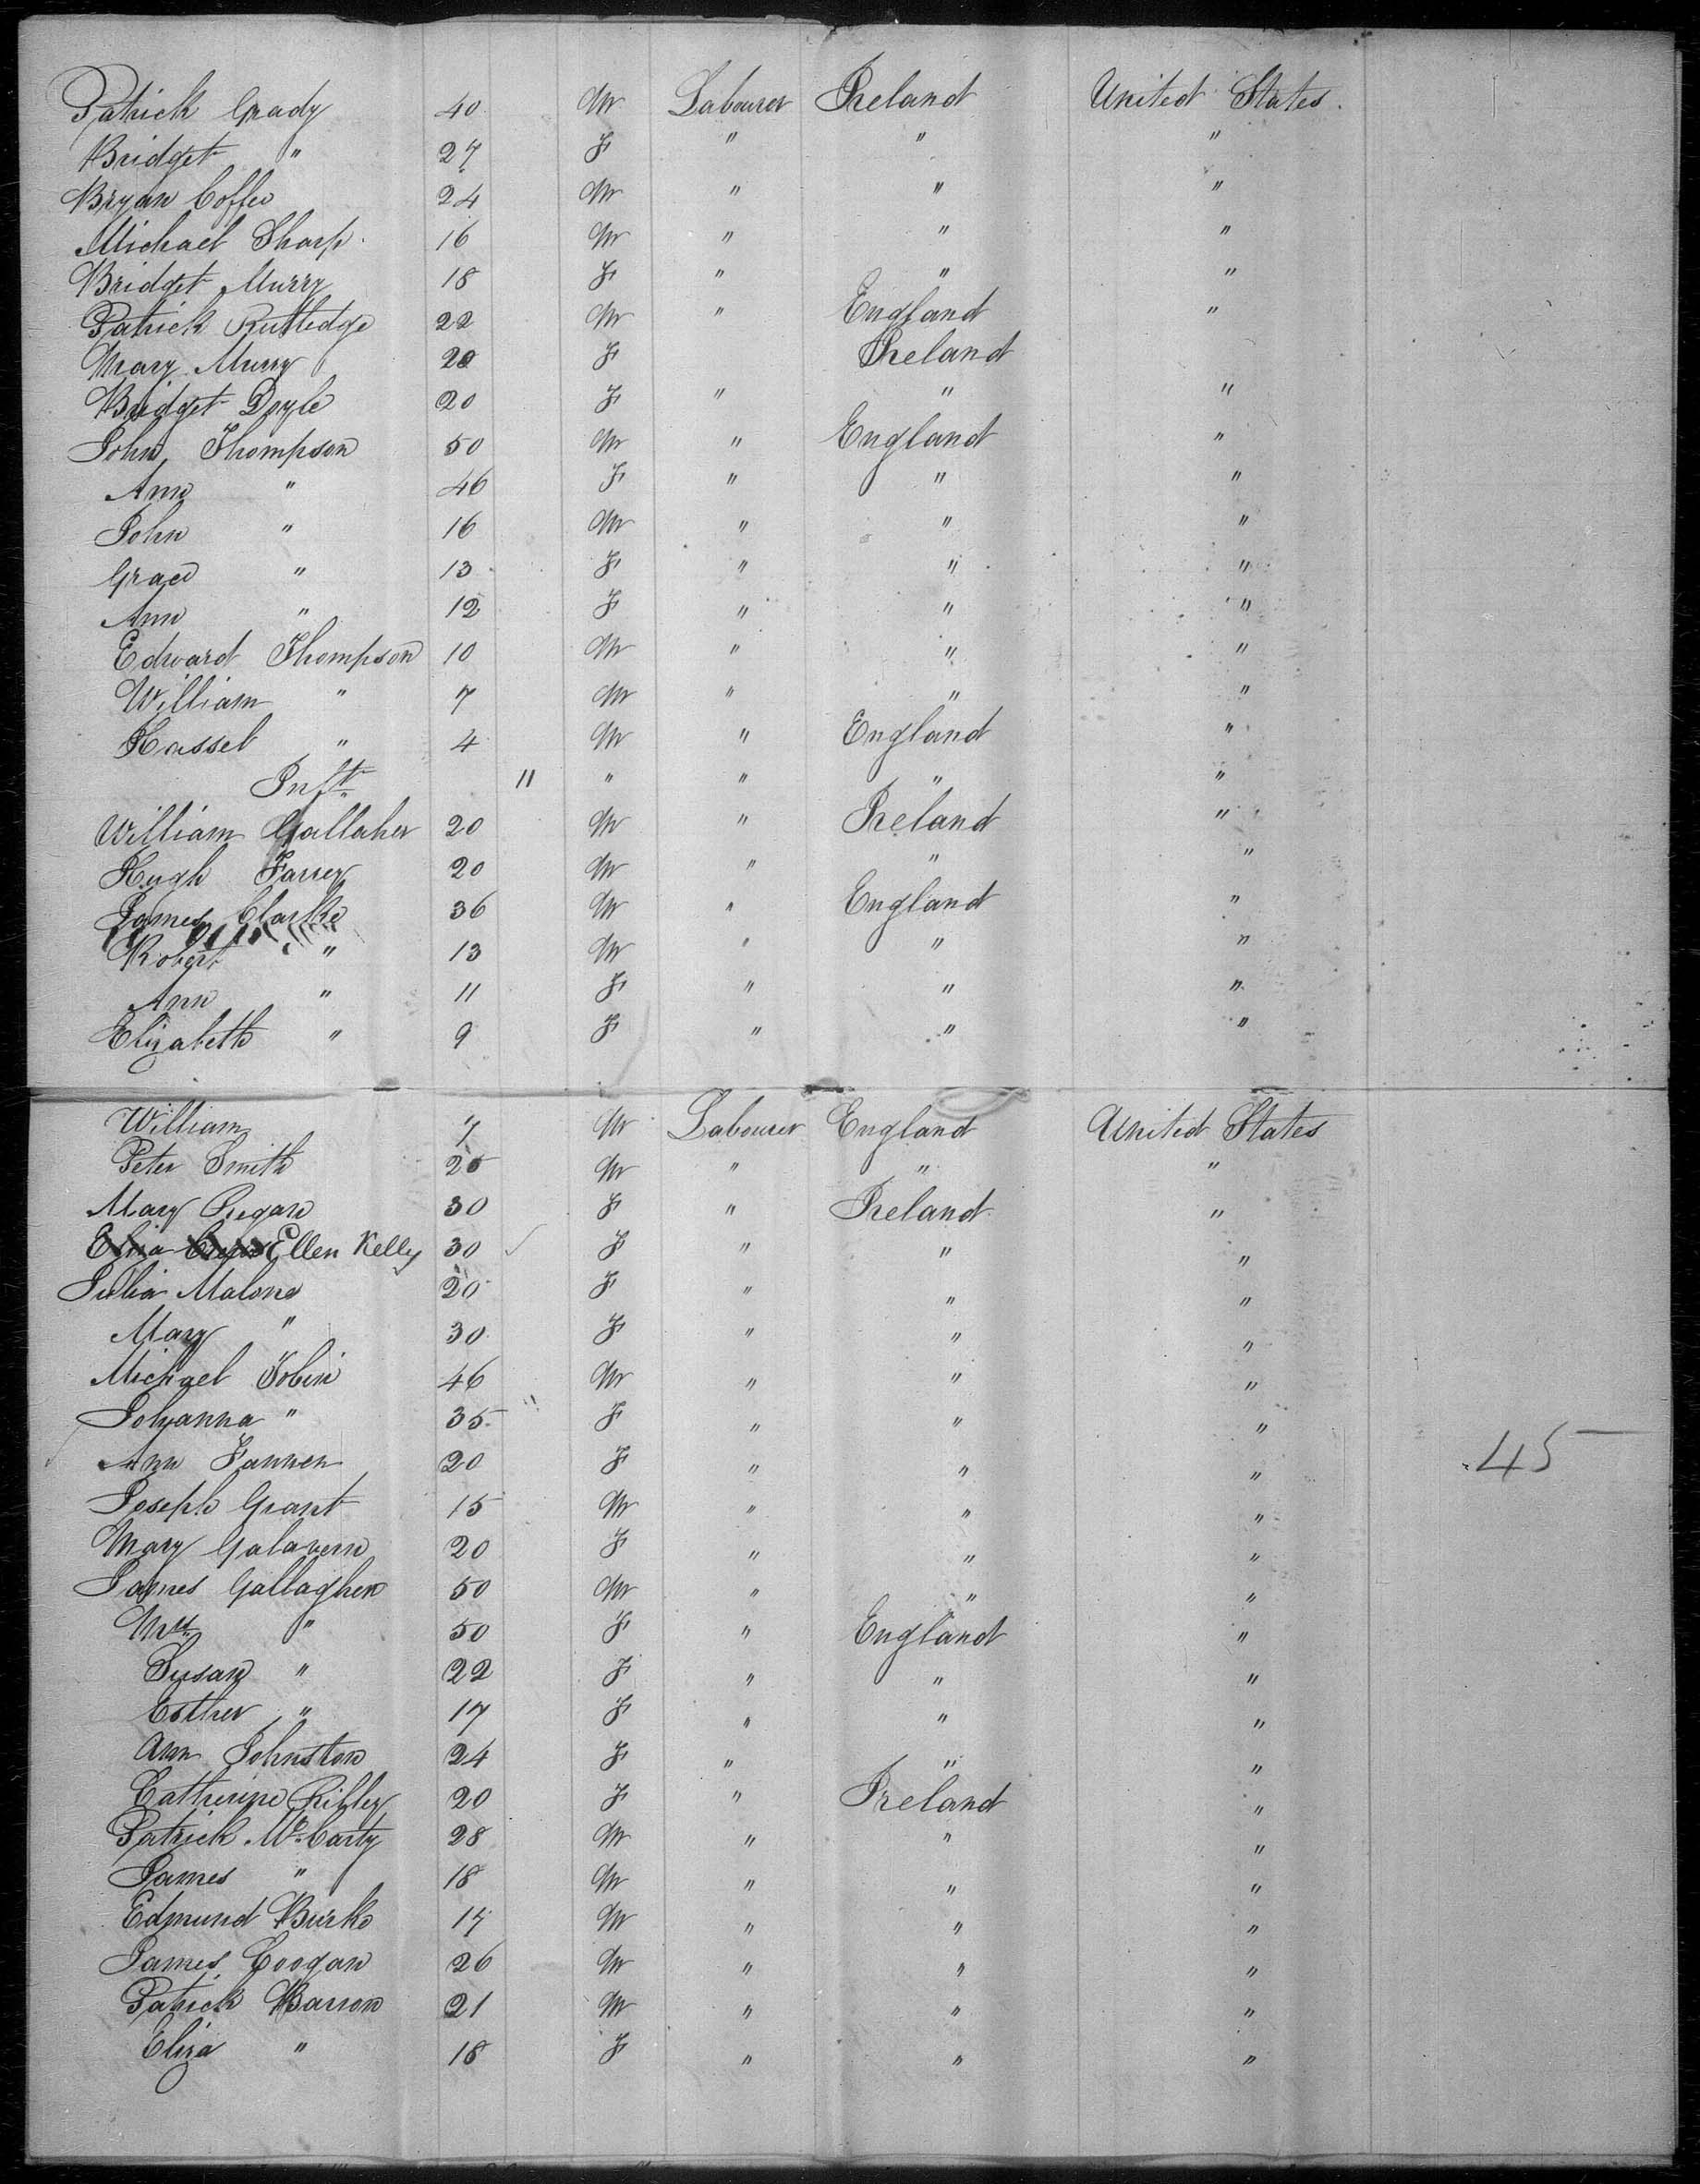 Patrick Grady 40 M Labourer Ireland United States.
Bridget " 27 F " " "
Bryan Coffee 24 M " " "
Michael Sharp 16 M " " "
Bridget Murry 18 F " " "
Patrick Rutledge 22 M " England "
Mary Murry 20 F Ireland
Bridget Doyle 20 F " " "
John Thompson 50 M " England "
Ann " 46 F " " "
John " 16 M " " "
Grace " 13 F " " "
Ann " 12 F " " "
Edward Thompson 10 M " " "
William " 7 M " " "
Hassel " 4 M " England "
Inft. 11 " " " "
William Gallaher 20 M " Ireland "
Hugh Farrey 20 M " " "
James Clarke 36 M " England "
Robert " 13 M " " "
Ann " 11 F " " "
Elizabeth " 9 F " " "
William 7 M Labourer England United States
Peter Smith 20 M " " "
Mary 30 F " Ireland "
Eliza Ellen Kelly 30 F " " "
Julia Malone 20 F " " "
Mary " 30 F " " "
Michael Tobin 46 M " " "
Johanna " 35 F " " "
Ann Fannen 20 F " " " 45
Joseph Grant 15 M " " "
Mary Galavern 20 F " " "
James Gallagher 50 M " " "
" 50 F " England "
Susan " 22 F " " "
Esther " 17 F " " "
Ann Johnston 24 F " " "
Catherine Rilley 20 F " Ireland "
Patrick McCarty 28 M " " "
James " 18 M " " "
Edmund Burke 17 M " " "
James Coogan 26 M " " "
Patrick Barron 21 M " " "
Eliza " 18 F " " "